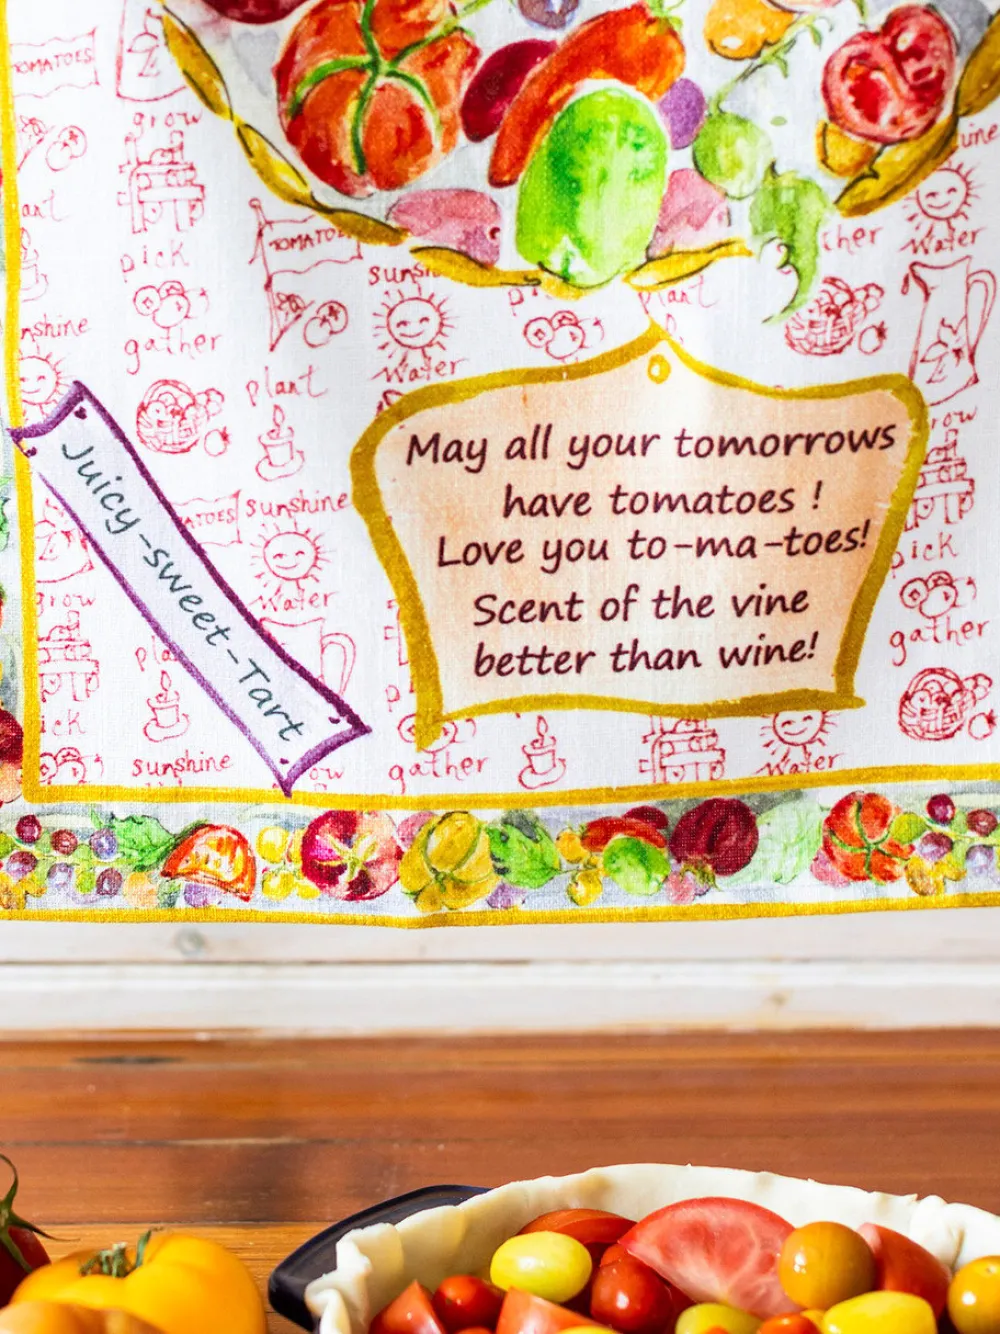 TOMATOES
grow
pick
TOMATO
sunsh
Water
gather
plant
sunshine
Water
plant
nshine
gather
plant
Water
row
Juicy-sweet-Tart
May all your tomorrows
have tomatoes !
Love you to-ma-toes!
Scent of the vine
better than wine!
ATOES
sunshine
Water
pick
gather
grow
pla
ick
sunshine
ow
gather
Water